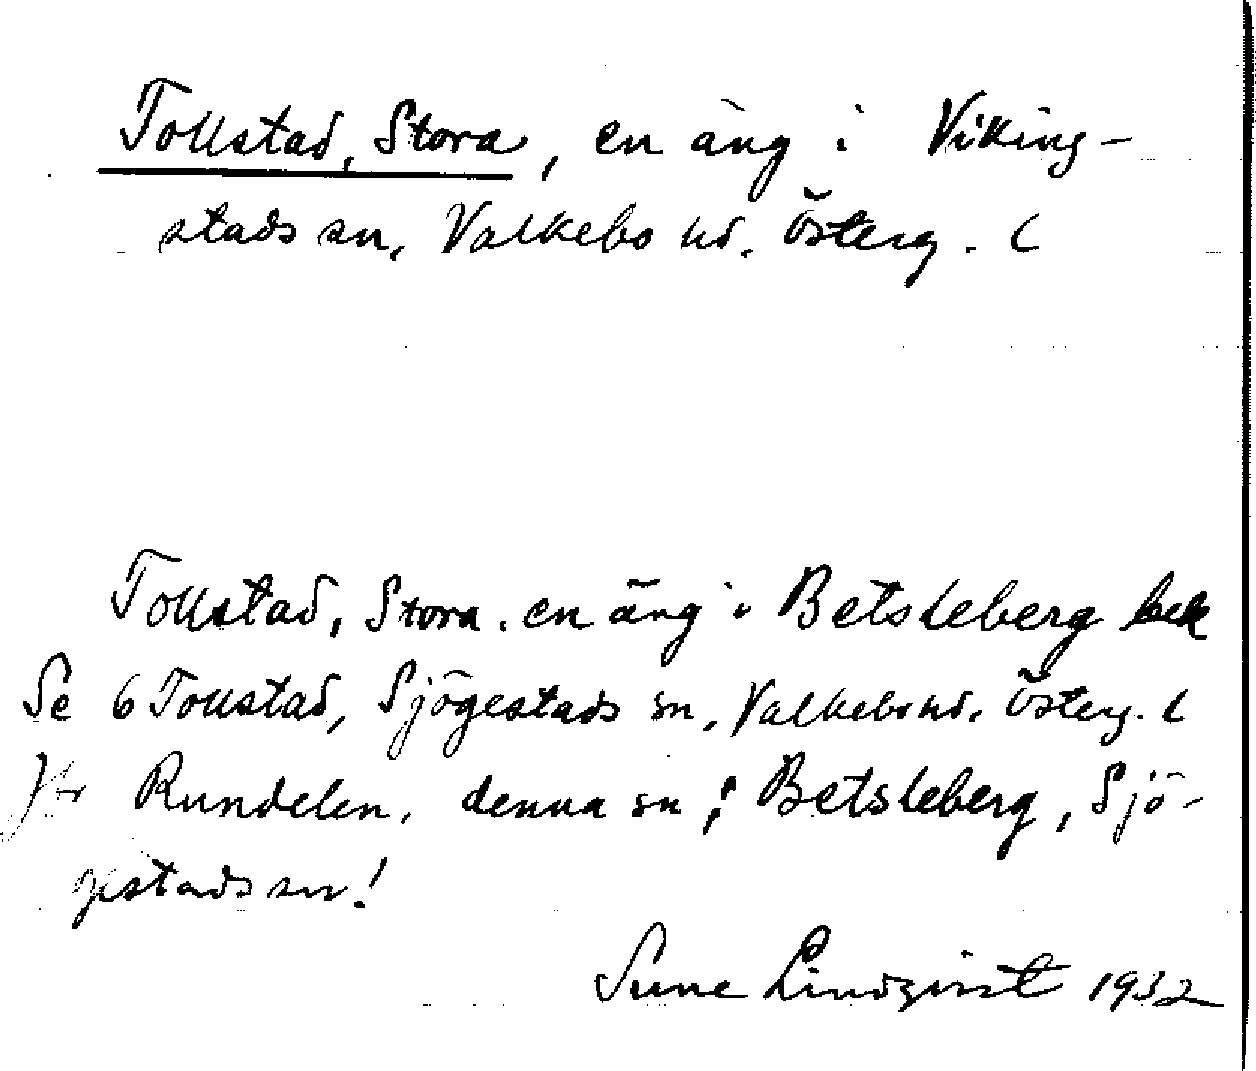 Tollstad, Stora, en äng i Viking-
stads sn, Valkebo hd. Österg. l
Tollstad, Stora. en äng i Betsleberg
Se 6 Tollstad, Sjögestads sn, Valkebo hd. Österg. l
Jfr Rundelen, denna sn; Betsleberg, Sjö-
gestads sn!
Sune Lindqvist 1932